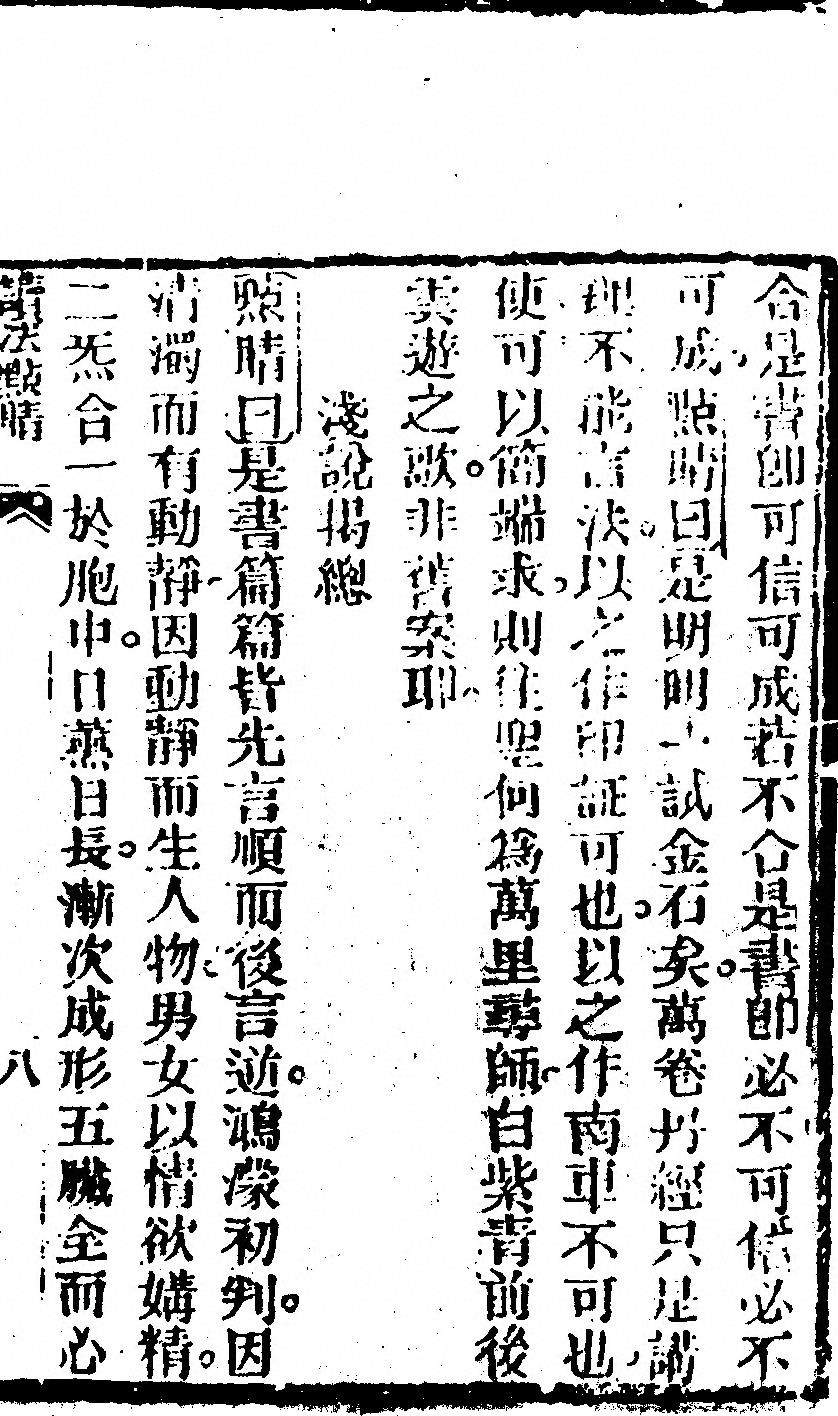 合是書卽可信可成若不合是書卽必不可信必不
可成點睛曰是明明一試金石矣萬卷丹經只是講
理不能言決以之作印証可也以之作南車不可也
使可以簡端求則往聖何爲萬里尋師白紫青前後
雲遊之歌非舊案耶
淺說揭總
點睛曰是書篇篇皆先言順而後言逆鴻濛初判因
清濁而有動靜因動靜而生人物男女以情欲媾精
二炁合一於胞中日蒸日長漸次成形五臟全而心
讀法點睛
八